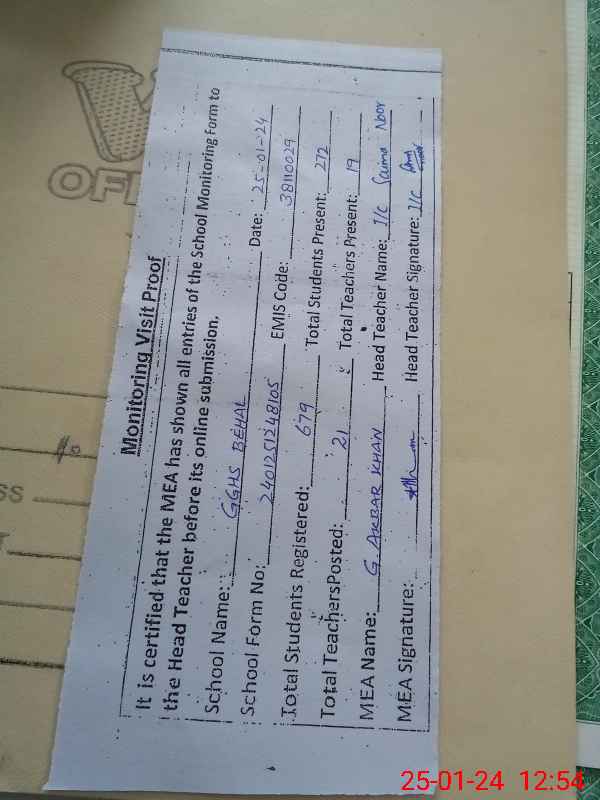 Monitoring Visit Proof
It is certified that the MEA has shown all entries of the School Monitoring Form to
the Head Teacher before its online submission.
School Name: GGHS BEHAL Date: 25-01-24
School Form No: 2401251248105 EMIS Code: 38110029
Total Students Registered: 679 Total Students Present: 272
Total TeachersPosted: 21 Total Teachers Present: 19
MEA Name: G. AKBAR KHAN Head Teacher Name: I/C Saima Noor
MEA Signature: Head Teacher Signature: I/C
OFF
SS
25-01-24 12:54